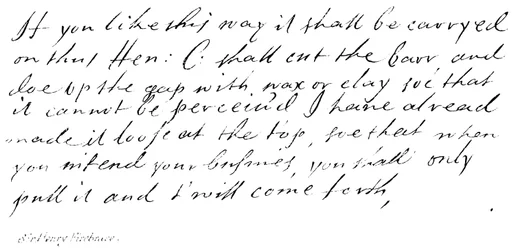 If you like this way it shall be carryed
on thus Hen: C: shall cut the barr, and
doe up the gap with wax or clay soe that
it cannot be perceiud I haue alread
made it loose at the top, soe that when
you intend your busines, you shall only
pull it and I will come forth,
Sir Henry Firebrace.